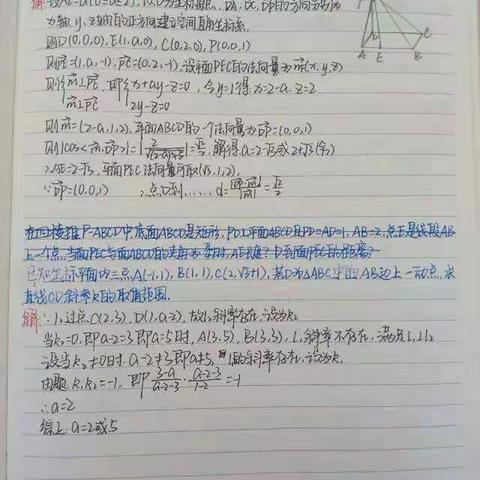 解:设AE=a(0≤a≤2),以D为坐标原点,DA,DC,DP的方向分别为
x轴,y,z轴的正方向建立空间直角坐标系,
则D(0,0,0),E(1,a,0),C(0,2,0),P(0,0,1)
则PE=(1,a,-1),PC=(0,2,-1),设平面PEC的法向量为m(x,y,z)
则{m⊥PE 即{x+ay-z=0 令y=1得x=2-a,z=2
m⊥PC 2y-z=0
则m=(2-a,1,2),平面ABCD的一个法向量为DP=(0,0,1)
解得a=2-√3或2+√3(舍)
∴AE=2-√3,平面PEC法向量可取(√3,1,2),
∵DP=(0,0,1) ∴点D到……d=
在四棱锥P-ABCD中,底面ABCD是矩形,PD⊥平面ABCD且PD=AD=1,AB=2,点E是线段AB
上一个点,当面PEC与面ABCD的夹角为 时,AE长度?D到面PEC的距离?
已知坐标平面内三点A(-1,1),B(1,1),C(2,√3+1),若D为△ABC中的AB边上一动点,求
直线CD斜率k的取值范围.
解:∵l₂过点C(2,3),D(1,a-2),故l₂斜率存在,设为k₂
当k₂=0,即a-2=3即a=5时,A(3,5),B(3,3),l₁斜率不存在,满足l₁⊥l₂
设当k₂≠0时,a-2≠3即a≠5,l₁的斜率存在,设为k₁
由题k₁k₂=-1,即 (3-a)/(a-2-3)·(a-2-3)/(1-2)=-1
∴a=2
综上,a=2或5
P
A E B
C